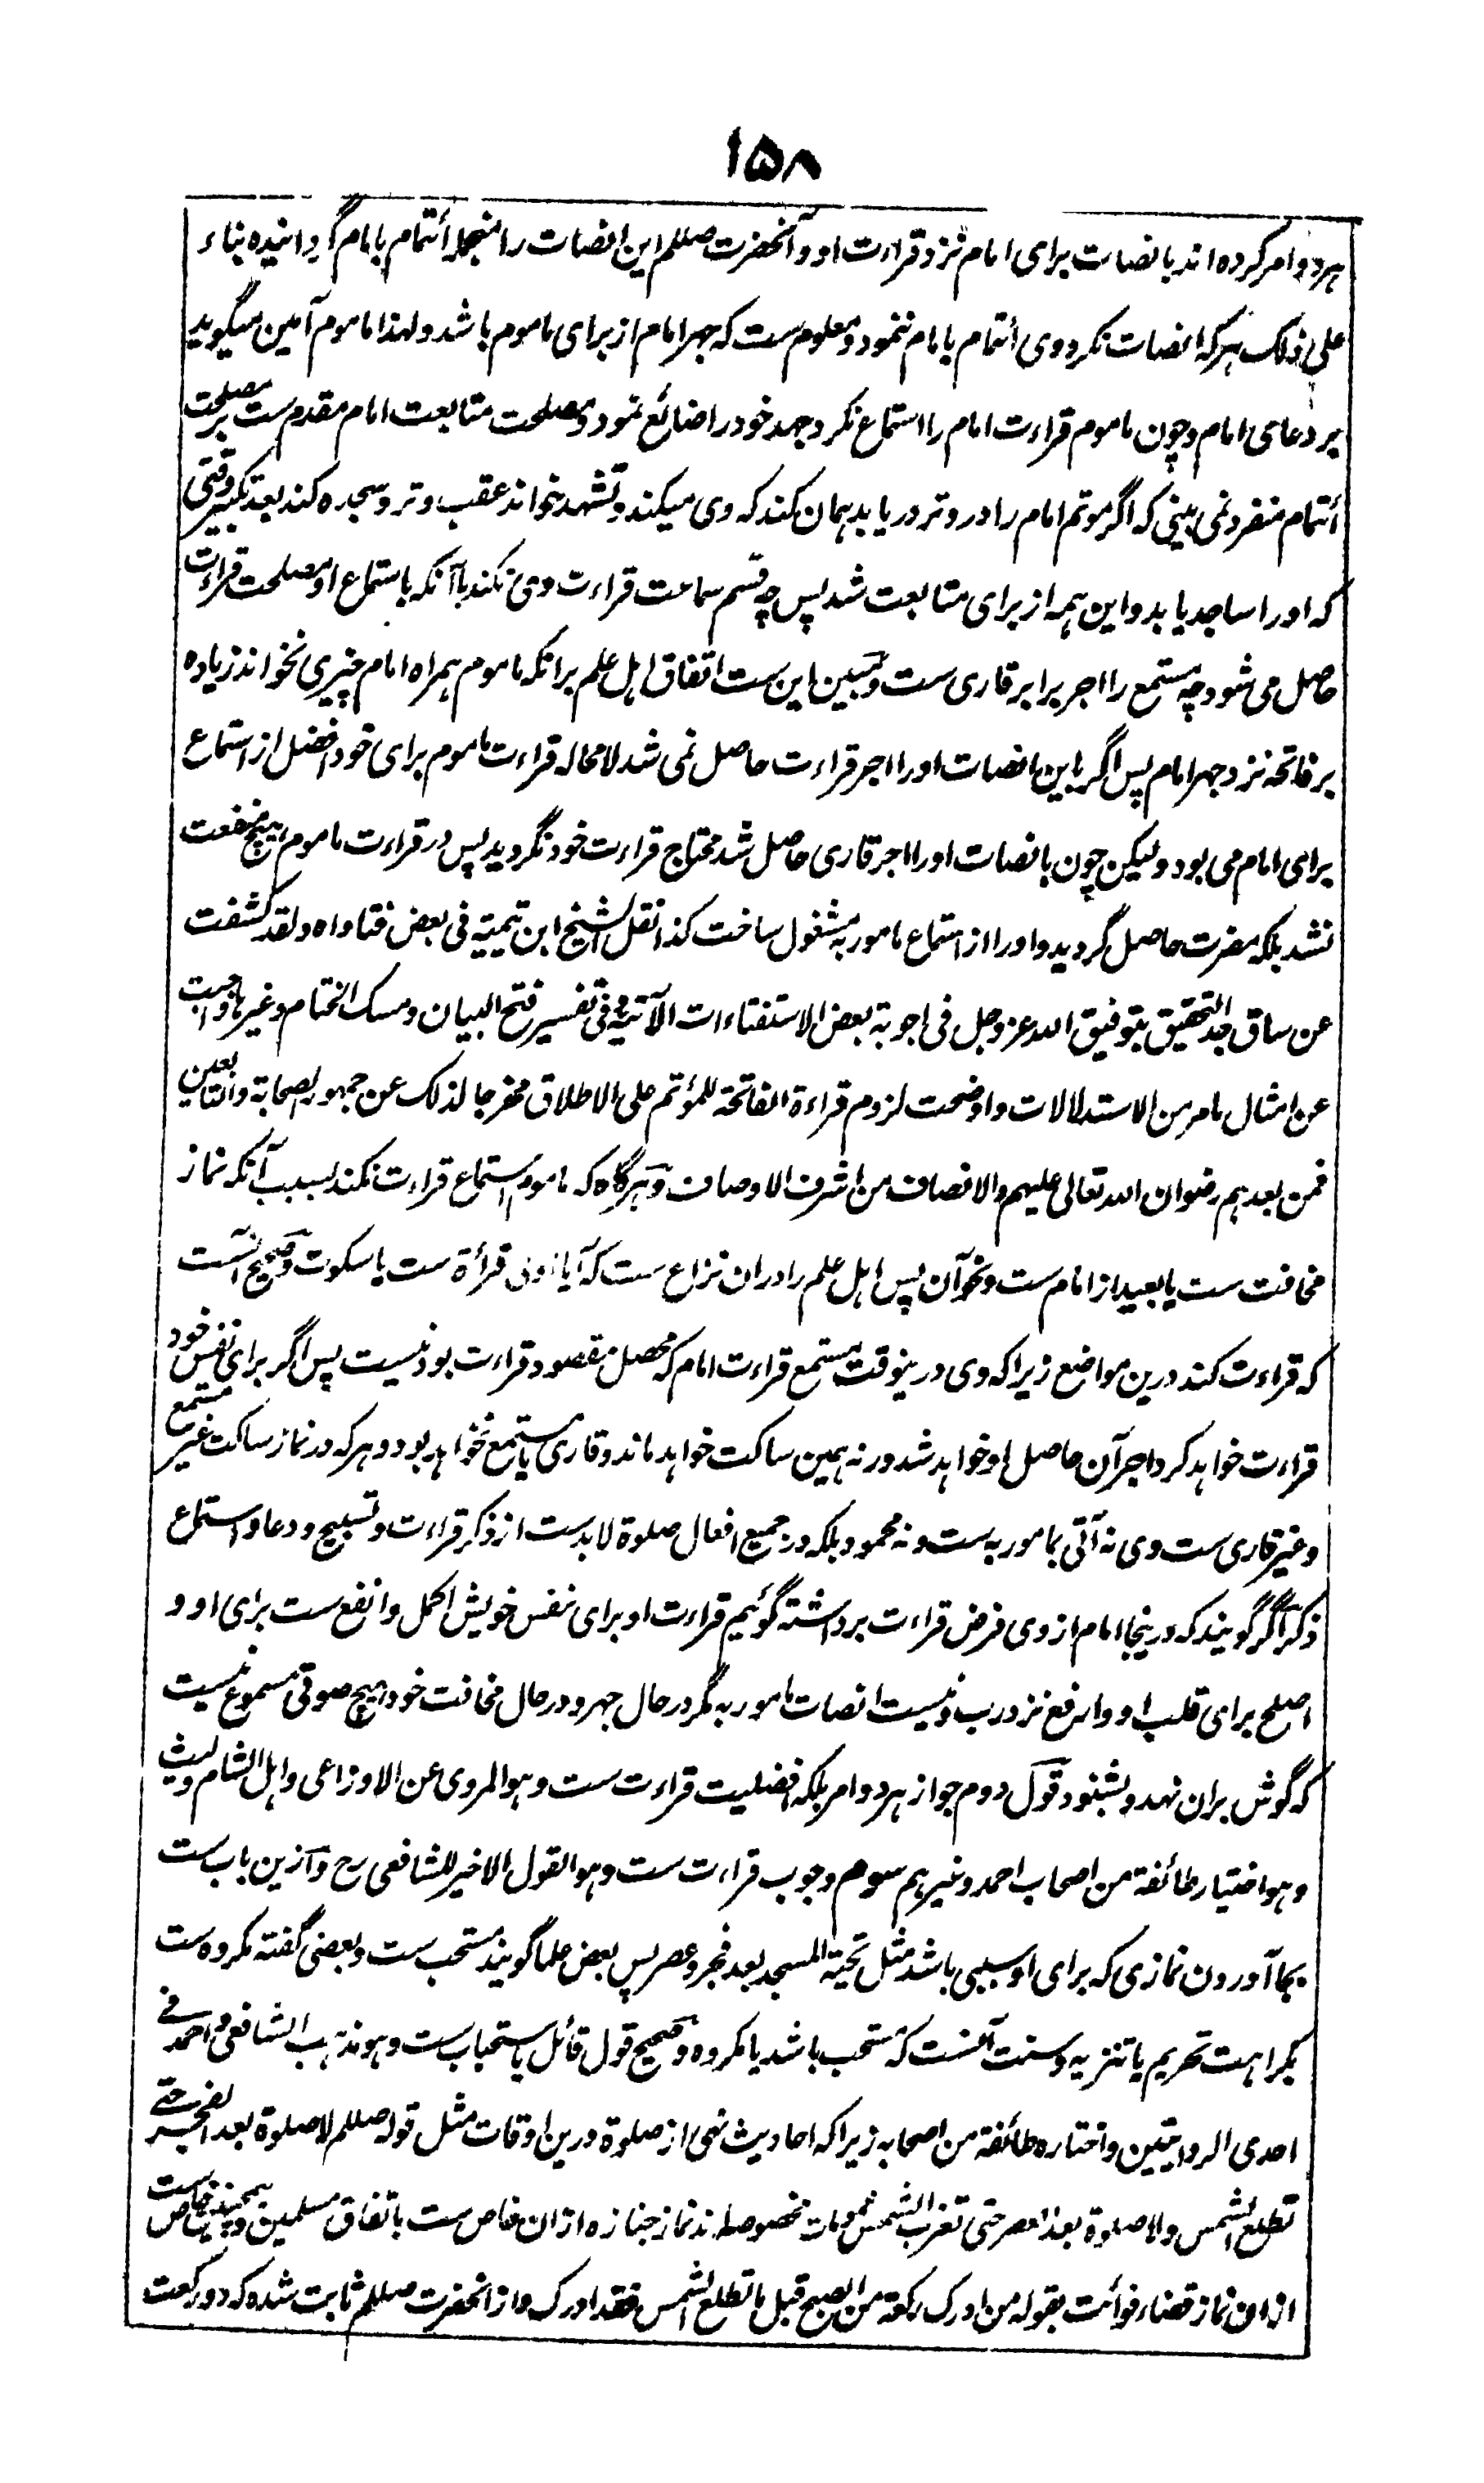 ۱۵۸
هر دو امر کرده اند بانصات برای امام نزد قراءت او و آنحضرت صللم این انصات را منجمله ائتمام بامام گردانیده بناء
علی ذلک هر که انصات نکرد وی ائتمام بامام ننمود و معلوم ست که جهر امام از برای ماموم باشد ولهذا ماموم آمین میگوید
بر دعای امام و چون ماموم قراءت امام را استماع نکرد جهد خود را ضائع نمود و مصلحت متابعت امام مقدم ست بر مصلحت
ائتمام منفرد نمی بینی که اگر موتم امام را در وتر دریابد همان کند که وی میکند و تشهد خواند عقب وتر و سجده کند بعد تکبیر وقتی
که او را ساجد یابد و این همه از برای متابعت شد پس چه قسم سماعت قراءت وی نکند باآنکه باستماع او مصلحت قراءت
حاصل می شود چه مستمع را اجر برابر قاری ست و مبین این ست اتفاق اهل علم برانکه ماموم همراه امام چیزی نخواند زیاده
بر فاتحه نزد جهر امام پس اگر باین انصات او را اجر قراءت حاصل نمی شد لامحاله قراءت ماموم برای خود افضل از استماع
برای امام می بود ولیکن چون بانصات او را اجر قاری حاصل شد محتاج قراءت خود نگردید پس در قراءت ماموم هیچ منفعت
نشد بلکه مضرت حاصل گردید و او را از استماع مامور به مشغول ساخت کذا نقل الشیخ ابن تیمیة فی بعض فتاواه ولقد کشفت
عن ساق جد التحقیق بتوفیق الله عز و جل فی اجوبة بعض الاستفتاءات الآتیة وفی تفسیر فتح البیان و مسک الختام و غیرها واجبت
عن امثال ما مر من الاستدلالات واوضحت لزوم قراءة الفاتحة للمؤتم علی الاطلاق مخرجا لذلک عن جمهور الصحابة والتابعین
فمن بعدهم رضوان الله تعالی علیهم والانصاف من اشرف الاوصاف و هرگاه که ماموم استماع قراءت نکند بسبب آنکه نماز
مخافتت ست یا بعید از امام ست و نحو آن پس اهل علم را دران نزاع ست که آیا اولی قرأة ست یا سکوت و صحیح آنست
که قراءت کند درین مواضع زیرا که وی درینوقت مستمع قراءت امام که محصل مقصود قراءت بود نیست پس اگر برای نفس خود
قراءت خواهد کرد اجر آن حاصل او خواهد شد ورنه همین ساکت خواهد ماند و قاری یا مستمع نخواهد بود و هر که در نماز ساکت غیر مستمع
و غیر قاری ست وی نه آتی بمامور به ست و نه محمود بلکه در جمیع افعال صلوة لابد ست از ذکر قراءت و تسبیح و دعا و استماع
ذکر اگر گویند که درینجا امام از وی فرض قراءت برداشته گوئیم قراءت او برای نفس خویش اکمل و انفع ست برای او و
اصلح برای قلب او و ارفع نزد رب و نیست انصات مامور به مگر در حال جهر و در حال مخافتت خود هیچ صوتی مسموع نیست
که گوش بران نهد و بشنود قول دوم جواز هر دو امر بلکه افضلیت قراءت ست وهو المروی عن الاوزاعی واهل الشام ولیث
وهو اختیار طائفة من اصحاب احمد وغیرهم سوم وجوب قراءت ست وهو القول الاخیر للشافعی رح و ازین باب ست
بجا آوردن نمازی که برای او سببی باشد مثل تحیة المسجد بعد فجر و عصر پس بعض علما گویند مستحب ست و بعضی گفته مکروه ست
بکراهت تحریم یا تنزیه و سنت آنست که مستحب باشد یا مکروه و صحیح قول قائل باستحباب ست وهو مذهب الشافعی و احمد فی
احدی الروایتین واختاره طائفة من اصحابه زیرا که احادیث نهی از صلوة درین اوقات مثل قوله صللم لا صلوة بعد الفجر حتی
تطلع الشمس ولا صلوة بعد العصر حتی تغرب الشمس عمومات مخصوصه اند نماز جنازه ازان خاص ست باتفاق مسلمین و همچنین خاص ست
ازان نماز قضاء فوائت بقوله من ادرک رکعة من الصبح قبل ما تطلع الشمس فقد ادرک و از آنحضرت صللم ثابت شده که دو رکعت